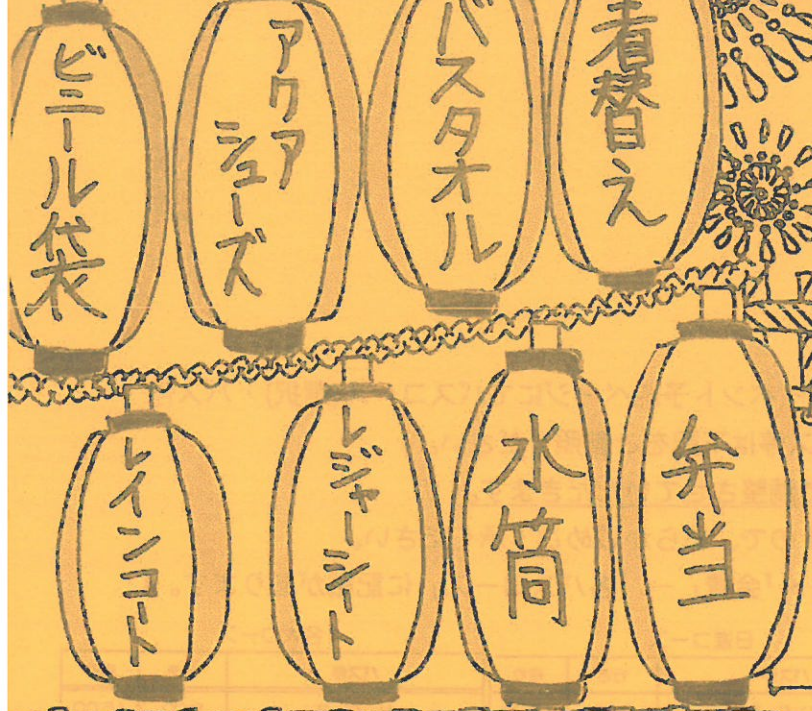 着替え
バスタオル
アクア
シューズ
ビニール袋
弁当
水筒
レジャーシート
レインコート